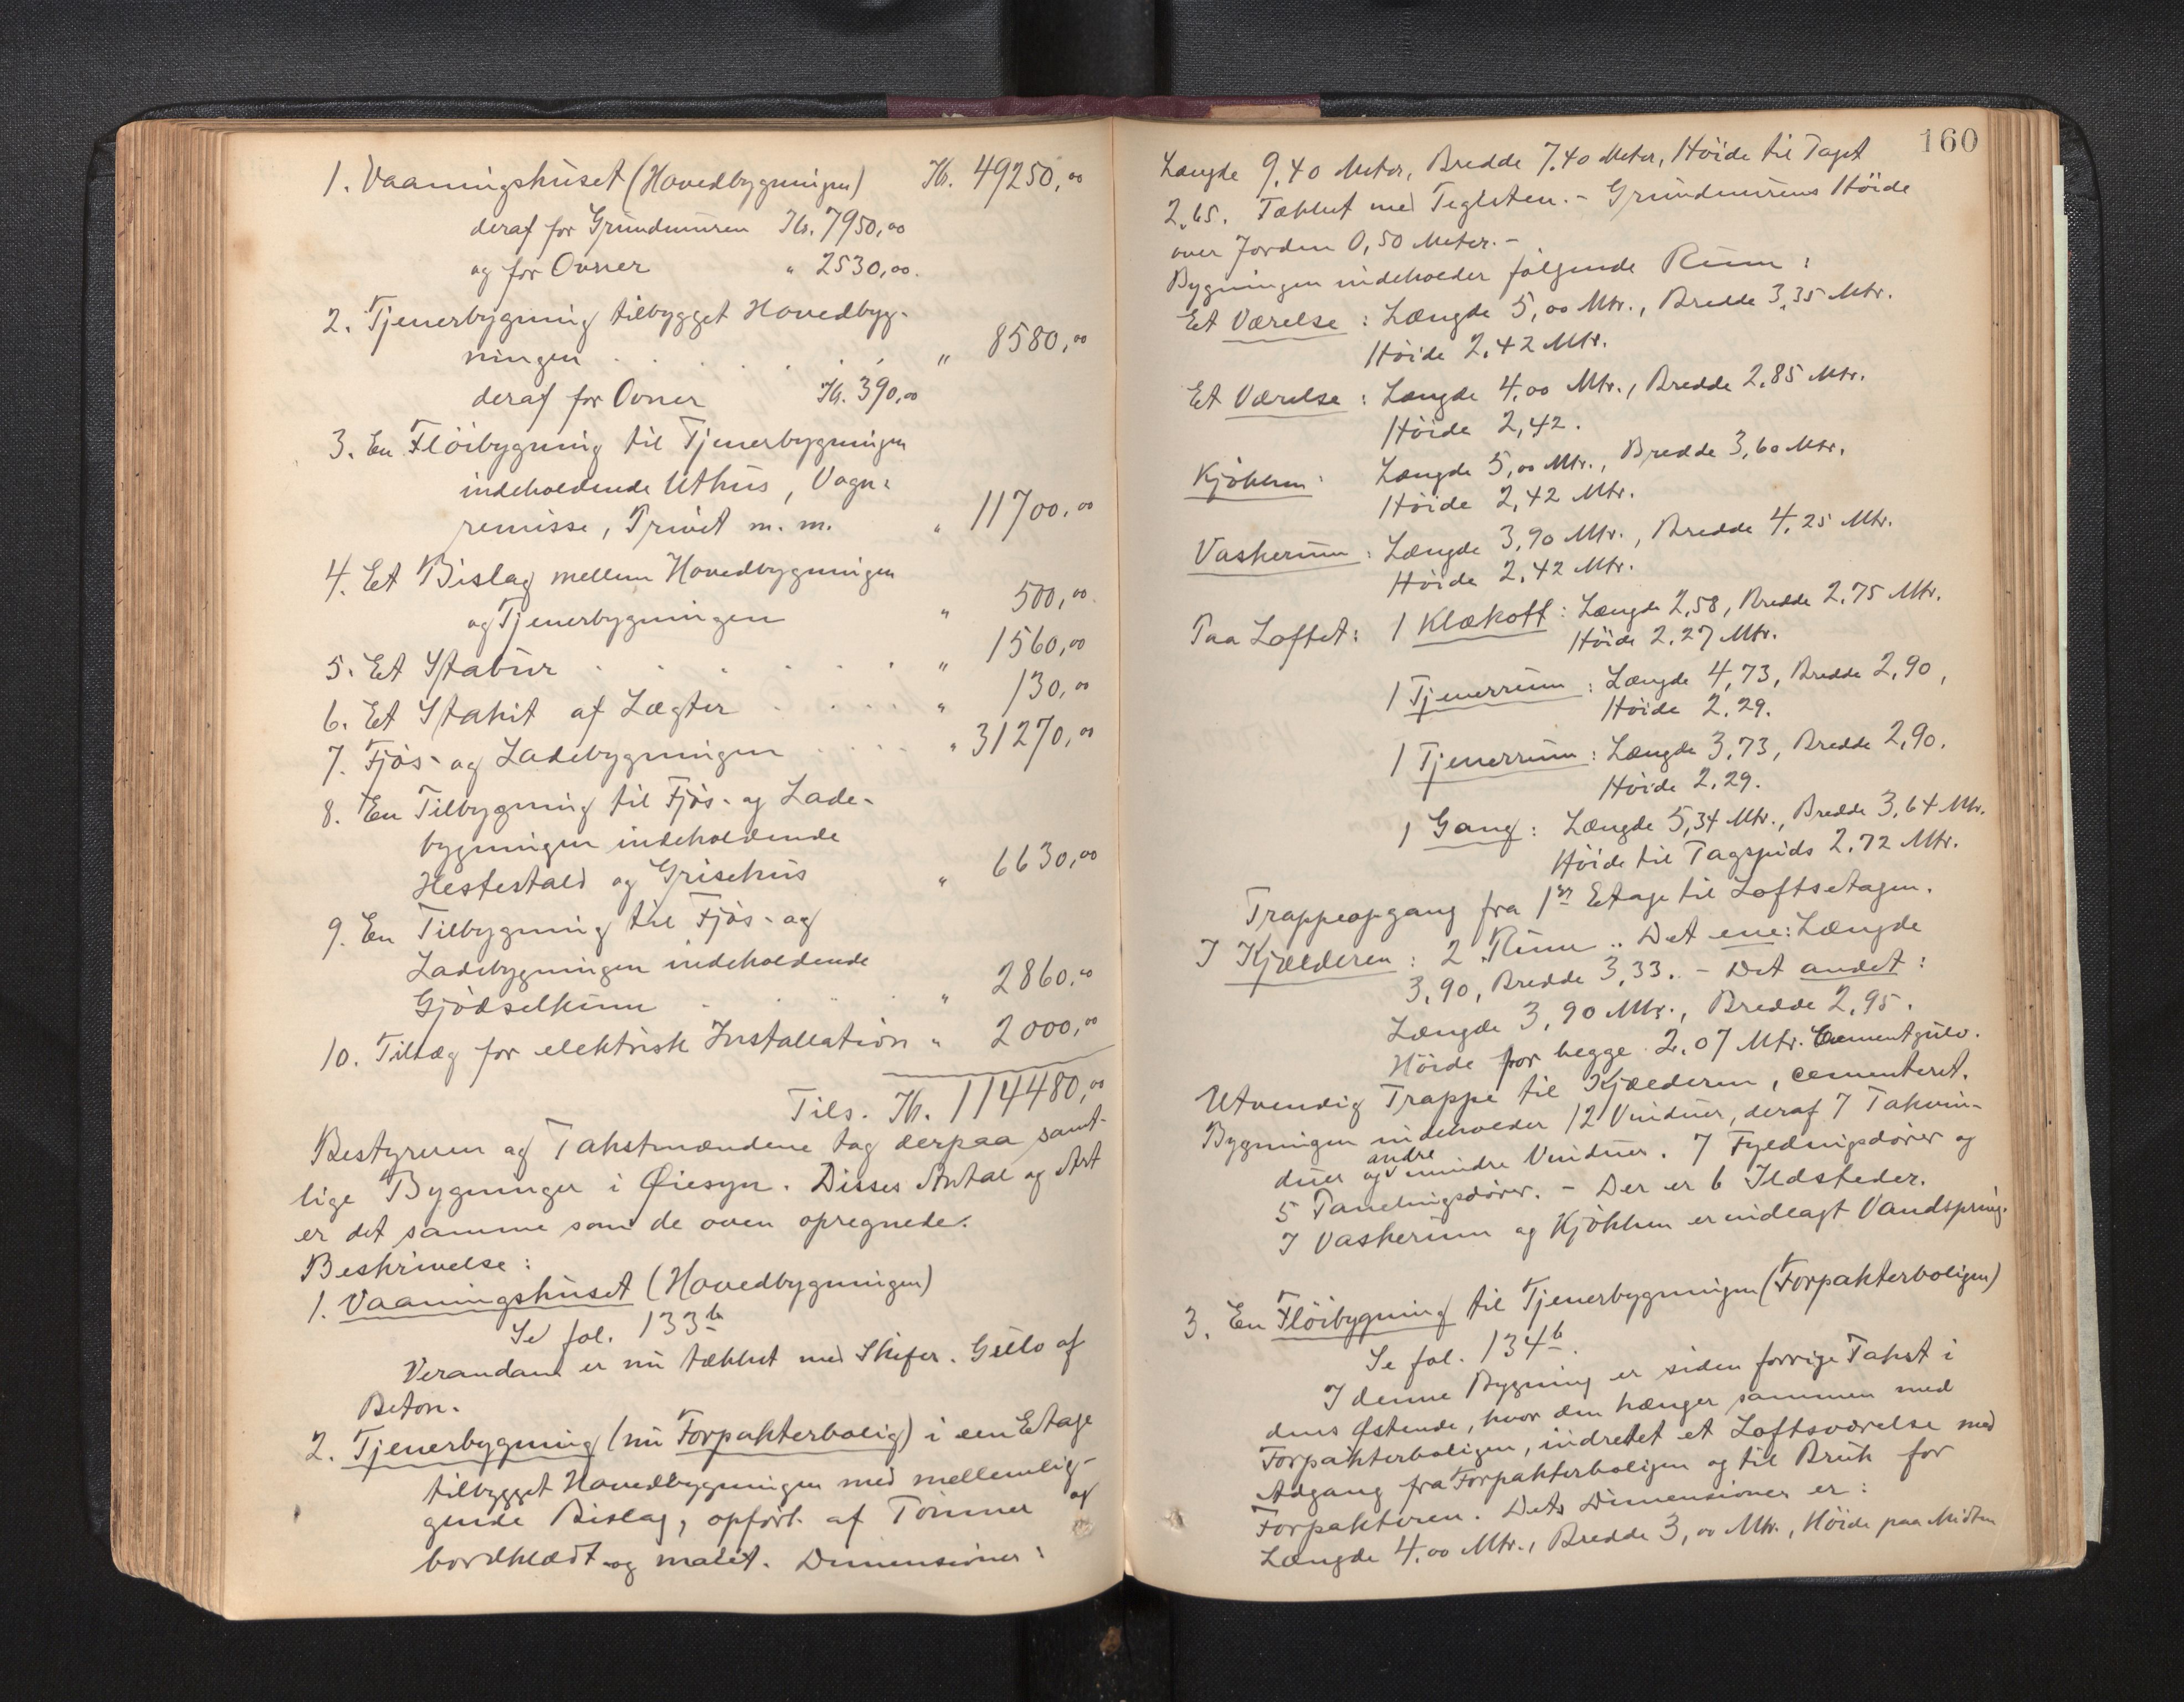 1. Vaaningshuset (Hovedbygningen) Kr. 49250,00
deraf for Grundmuren Kr. 7950,00
og for Ovner " 2530,00.
2. Tjenerbygning tilbygget Hovedbyg-
ningen . . . . . " 8580,00
deraf for Ovner Kr. 390,00
3. En Flöibygning til Tjenerbygningen
indeholdende Uthus, Vogn-
remisse, Privet m. m. " 11700,00
4. Et Bislag mellem Hovedbygningen
og Tjenerbygningen " 500,00
5. Et Stabur . . . . . . " 1560,00
6. Et Stakit af Lægter . . . . " 130,00
7. Fjös- og Ladebygningen . . . . " 31270,00
8. En Tilbygning til Fjös- og Lade-
bygningen indeholdende
Hestestald og Grisehus " 6630,00
9. En Tilbygning til Fjös- og
Ladebygningen indeholdende
Gjödselkum . . . . " 2860,00
10. Tillæg for elektrisk Installation " 2000,00
Tils. Kr. 114480,00
Bestyreren og Takstmændene tog derpaa samt-
lige Bygninger i Øiesyn. Disses Antal og Art
er det samme som de oven opregnede.
Beskrivelse:
1. Vaaningshuset (Hovedbygningen)
Se fol. 133b
Verandaen er nu tækket med Skifer. Gulv af
Beton.
2. Tjenerbygning (nu Forpakterbolig) i een Etage
tilbygget Hovedbygningen med mellemlig-
gende Bislag, opfört af Tömmer og
bordklædt og malet. Dimensioner:
160
Længde 9,40 Meter, Bredde 7,40 Meter, Höide til Taget
2,65. Tækket med Teglsten. - Grundmurens Höide
over Jorden 0,50 Meter. -
Bygningen indeholder følgende Rum:
Et Værelse: Længde 5,00 Mtr., Bredde 3,35 Mtr.
Höide 2,42 Mtr.
Et Værelse: Længde 4,00 Mtr., Bredde 2,85 Mtr.
Höide 2,42.
Kjökken: Længde 5,00 Mtr., Bredde 3,60 Mtr.
Höide 2,42 Mtr.
Vaskerum: Længde 3,90 Mtr., Bredde 4,25 Mtr.
Höide 2,42 Mtr.
Paa Loftet: 1 Klækott: Længde 2,58, Bredde 2,75 Mtr.
Höide 2,27 Mtr.
1 Tjenerrum: Længde 4,73, Bredde 2,90,
Höide 2,29.
1 Tjenerrum: Længde 3,73, Bredde 2,90.
Höide 2,29.
1 Gang: Længde 5,34 Mtr., Bredde 3,64 Mtr.
Höide til Tagspids 2,72 Mtr.
Trappeopgang fra 1ste Etage til Loftsetagen.
I Kjælderen: 2 Rum.. Det ene: Længde
3,90, Bredde 3,33. - Det andet:
Længde 3,90 Mtr., Bredde 2,95.
Höide for begge 2,07 Mtr. Cementgulv.
Utvendig Trappe til Kjælderen, cementeret.
Bygningen indeholder 12 Vinduer, deraf 7 Takvin-
duer og andre mindre Vinduer. 7 Fyldningsdörer og
5 Panelingsdörer. - Der er 6 Ildsteder.
I Vaskerum og Kjökken er indlagt Vandspring.
3. En Flöibygning til Tjenerbygningen (Forpakterboligen)
Se fol. 134b.
I denne Bygning er siden forrige Takst i
dens Østende, hvor den hænger sammen med
Forpakterboligen, indredet et Loftsværelse med
Adgang fra Forpakterboligen og til Bruk for
Forpakteren. Dets Dimensioner er:
Længde 4,00 Mtr., Bredde 3,00 Mtr., Höide paa Midten